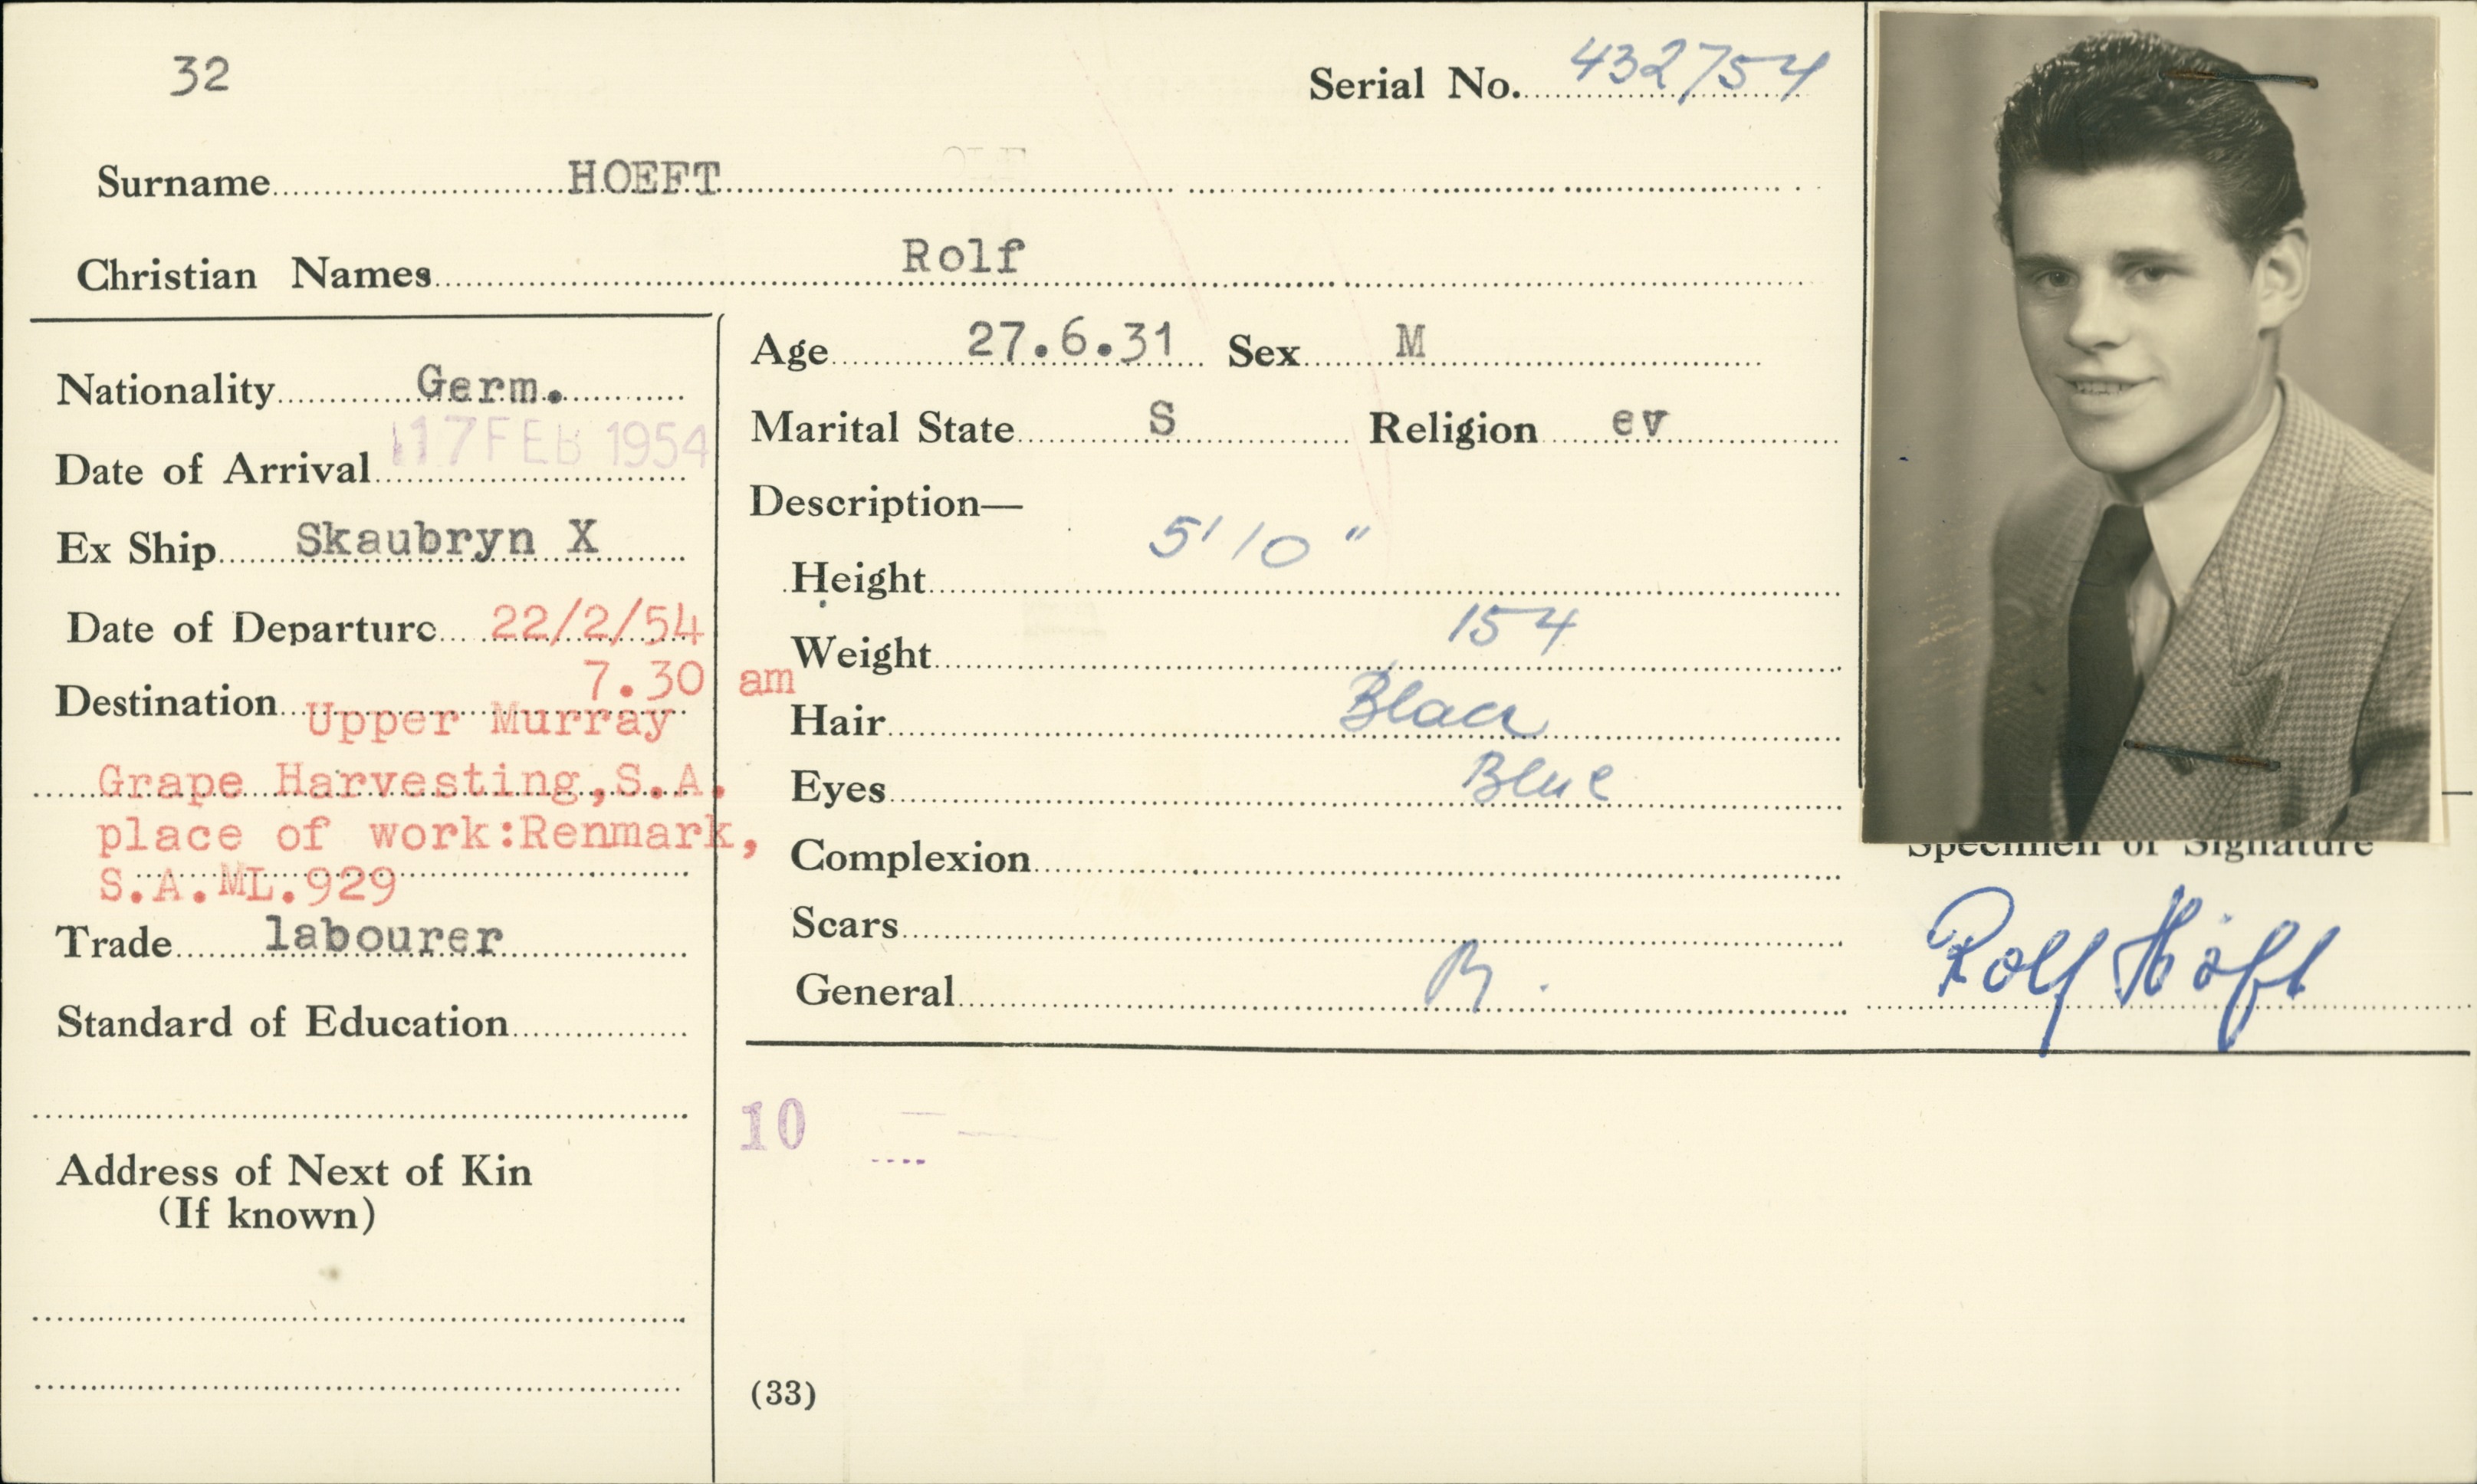 32
Serial No. 432754
Surname HOEFT
Christian Names Rolf
Nationality Germ.
Date of Arrival 17 FEB 1954
Ex Ship Skaubryn X
Date of Departure 22/2/54
7.30 am
Destination Upper Murray
Grape Harvesting,S.A.
place of work:Renmark,
S.A.ML.929
Trade labourer
Standard of Education
Address of Next of Kin
(If known)
Age 27.6.31 Sex M
Marital State S Religion ev
Description—
Height 5'10"
Weight 154
Hair Black
Eyes Blue
Complexion
Scars
General
10
(33)
Specimen of Signature
Rolf Höft